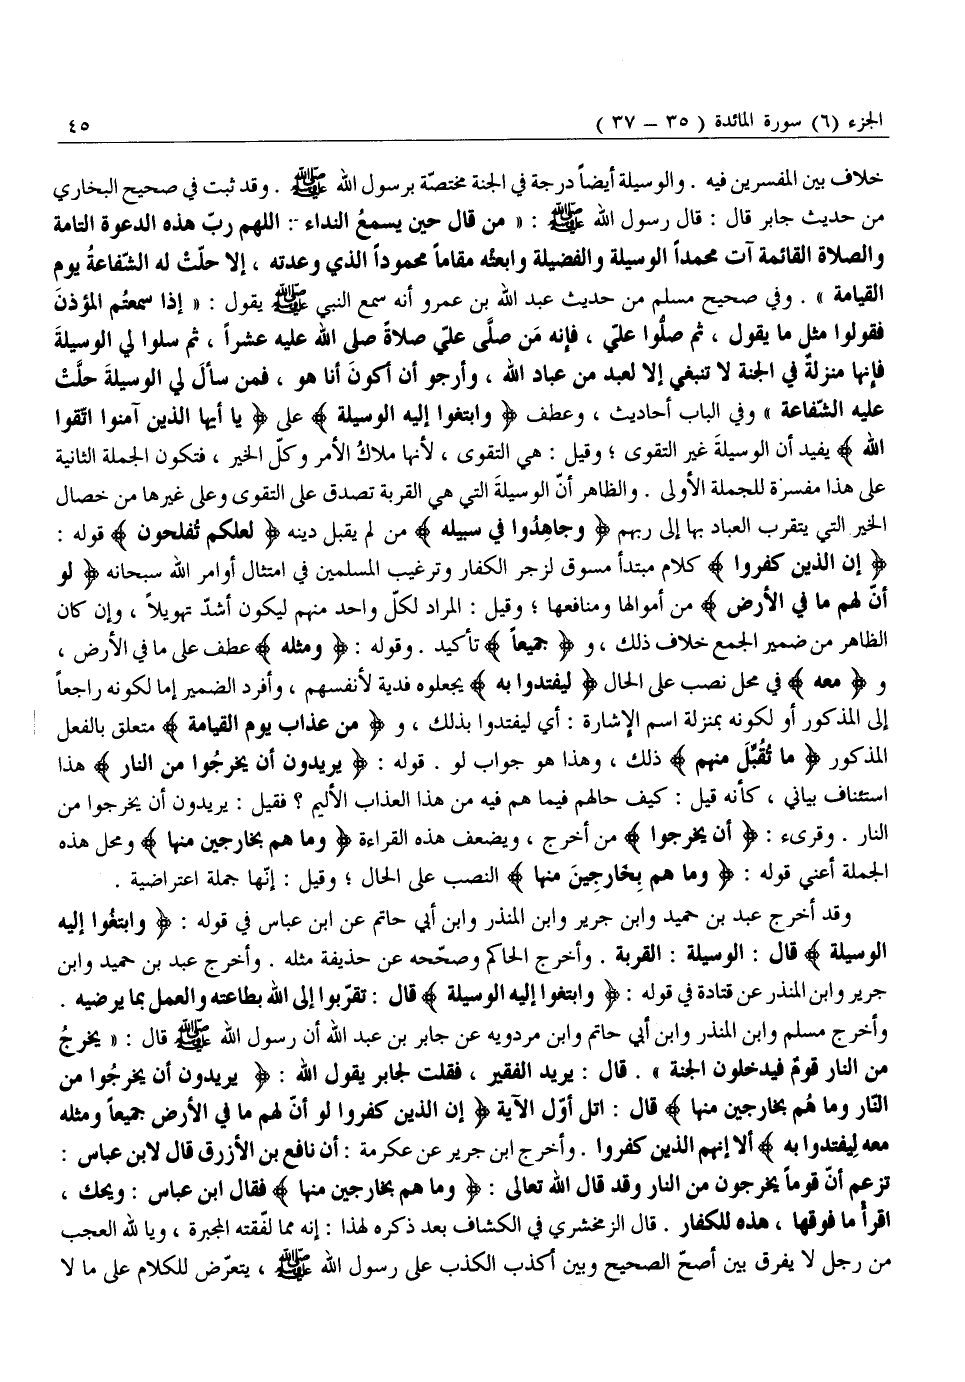 الجزء (٦) سورة المائدة ( ٣٥ – ٣٧ ) ٤٥
خلاف بين المفسرين فيه . والوسيلة أيضاً درجة في الجنة مختصّة برسول الله ﷺ . وقد ثبت في صحيح البخاري
من حديث جابر قال : قال رسول الله ﷺ : « من قال حين يسمعُ النداء : اللهم ربّ هذه الدعوة التامة
والصلاة القائمة آت محمداً الوسيلة والفضيلة وابعثه مقاماً محموداً الذي وعدته ، إلا حلّتْ له الشّفاعةُ يوم
القيامة » . وفي صحيح مسلم من حديث عبد الله بن عمرو أنه سمع النبي ﷺ يقول : « إذا سمعتُم المؤذنَ
فقولوا مثل ما يقول ، ثم صلُّوا عليّ ، فإنه مَن صلَّى عليّ صلاةً صلى الله عليه عشراً ، ثم سلوا لي الوسيلةَ
فإنها منزلةٌ في الجنة لا تنبغي إلا لعبد من عباد الله ، وأرجو أن أكونَ أنا هو ، فمن سألَ لي الوسيلةَ حلَّتْ
عليه الشّفاعة » وفي الباب أحاديث ، وعطف ﴿ وابتغوا إليه الوسيلة ﴾ على ﴿ يا أيها الذين آمنوا اتّقوا
الله ﴾ يفيد أن الوسيلةَ غير التقوى ؛ وقيل : هي التقوى ، لأنها ملاكُ الأمر وكلّ الخير ، فتكون الجملة الثانية
على هذا مفسرَة للجملة الأولى . والظاهر أنّ الوسيلةَ التي هي القربة تصدق على التقوى وعلى غيرها من خصال
الخير التي يتقرب العباد بها إلى ربهم ﴿ وجاهِدُوا في سبيله ﴾ من لم يقبل دينه ﴿ لعلكم تُفلحون ﴾ قوله :
﴿ إن الذين كفروا ﴾ كلام مبتدأ مسوق لزجر الكفار وترغيب المسلمين في امتثال أوامر الله سبحانه ﴿ لو
أنّ لهم ما في الأرض ﴾ من أموالها ومنافعها ؛ وقيل : المراد لكلّ واحد منهم ليكون أشدّ تهويلاً ، وإن كان
الظاهر من ضمير الجمع خلاف ذلك ، و ﴿ جميعاً ﴾ تأكيد . وقوله : ﴿ ومثله ﴾ عطف على ما في الأرض ،
و ﴿ معه ﴾ في محل نصب على الحال ﴿ ليفتدوا به ﴾ يجعلوه فدية لأنفسهم ، وأفرد الضمير إما لكونه راجعاً
إلى المذكور أو لكونه بمنزلة اسم الإشارة : أي ليفتدوا بذلك ، و ﴿ من عذاب يوم القيامة ﴾ متعلق بالفعل
المذكور ﴿ ما تُقُبِّلَ منهم ﴾ ذلك ، وهذا هو جواب لو . قوله : ﴿ يريدون أن يخرجُوا من النار ﴾ هذا
استئناف بياني ، كأنه قيل : كيف حالهم فيما هم فيه من هذا العذاب الأليم ؟ فقيل : يريدون أن يخرجوا من
النار . وقرىء : ﴿ أن يخرجوا ﴾ من أخرج ، ويضعف هذه القراءة ﴿ وما هم بخارجين منها ﴾ ومحل هذه
الجملة أعني قوله : ﴿ وما هم بِخَارجِينَ منها ﴾ النصب على الحال ؛ وقيل : إنّها جملة اعتراضية .
وقد أخرج عبد بن حميد وابن جرير وابن المنذر وابن أبي حاتم عن ابن عباس في قوله : ﴿ وابتغُوا إليه
الوسيلة ﴾ قال : الوسيلة : القربة . وأخرج الحاكم وصحّحه عن حذيفة مثله . وأخرج عبد بن حميد وابن
جرير وابن المنذر عن قتادة في قوله : ﴿ وابتغوا إليه الوسيلة ﴾ قال : تقرّبوا إلى الله بطاعته والعمل بما يرضيه .
وأخرج مسلم وابن المنذر وابن أبي حاتم وابن مردويه عن جابر بن عبد الله أن رسول الله ﷺ قال : « يخرجُ
من النار قومٌ فيدخلون الجنة » . قال : يزيد الفقير ، فقلت لجابر يقول الله : ﴿ يريدون أن يخرجُوا من
النّار وما هُم بخارجين منها ﴾ قال : اتل أوّل الآية ﴿ إن الذين كفروا لو أنّ لهم ما في الأرض جميعاً ومثله
معه لِيفتدوا به ﴾ ألا إنهم الذين كفروا . وأخرج ابن جرير عن عكرمة : أن نافع بن الأزرق قال لابن عباس :
تزعم أنّ قوماً يخرجون من النار وقد قال الله تعالى : ﴿ وما هم بخارجين منها ﴾ فقال ابن عباس : ويحك ،
اقرأ ما فوقها ، هذه للكفار . قال الزمخشري في الكشاف بعد ذكره لهذا : إنه مما لفّقته المجبرة ، ويا لله العجب
من رجل لا يفرق بين أصحّ الصحيح وبين أكذب الكذب على رسول الله ﷺ ، يتعرّض للكلام على ما لا